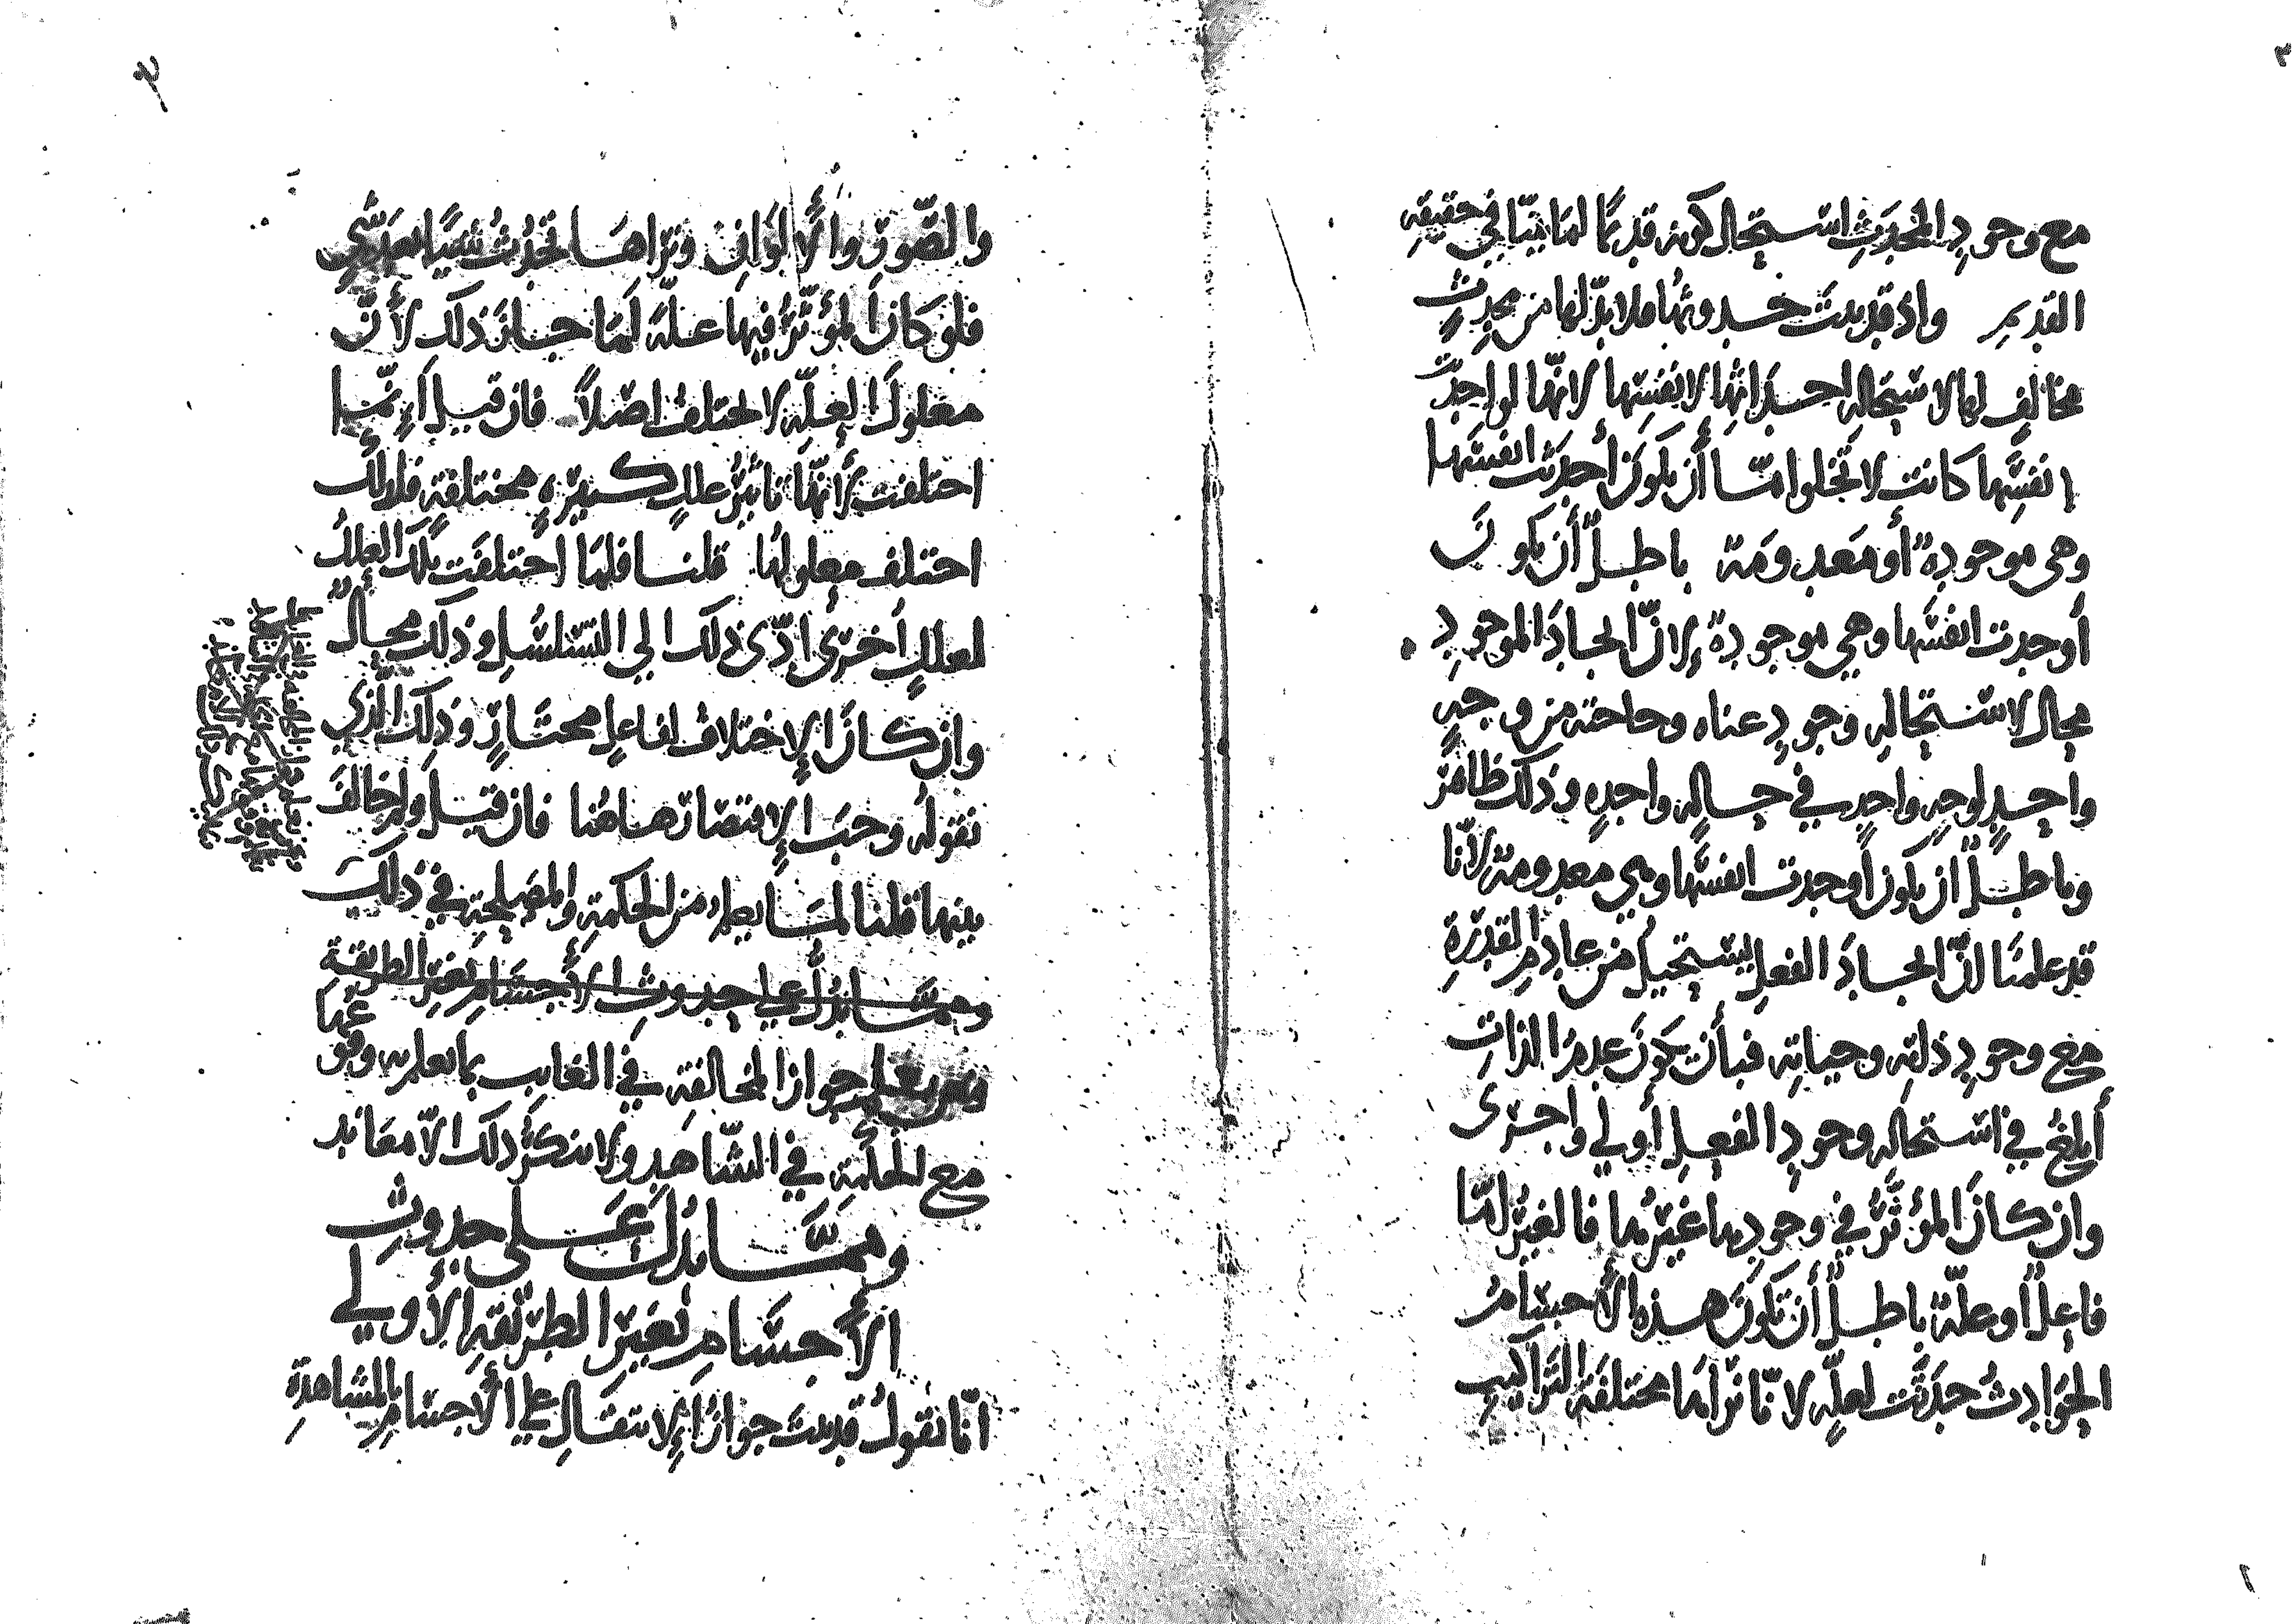 مع وجودِ المحدَثِ استحال كونه قديمًا لمنا في حقيقة
القديمِ وإذ قد ثبت حدوثها فلا بدّ لها من محدِثٍ
مخالفٍ لها لاستحالةِ احداثها لانفسِها لانّها لو احدثت
انفسَها كانت لا تخلوا امّا أن يكونَ أحدثت انفسَها
وهى موجودةٌ أو معدومة باطلٌ أن يكونَ
أوجدت انفسَها وهي موجودةٌ لانّ ايجادَ الموجودِ
محال لاستحالةِ وجودِ غناه وحاجته من وجهٍ
واحدٍ لوجهٍ واحدٍ في حالةٍ واحدةٍ وذلك ظاهرٌ
وباطلٌ ان يكون أوجدت انفسَها وهي معدومة لانّا
قد علمنا انّ ايجادَ الفعلِ يستحيل من عادمِ القدرةِ
مع وجودِ ذاتِه وحياتِه فبأن يكونَ عدمُ الذاتِ
أبلغَ في استحالةِ وجودِ الفعلِ أولى واحرى
وان كانَ المؤثّرُ في وجودِها غيرُها فالغيرُ امّا
فاعلٌ او علّة باطلٌ أن تكونَ هذه الأجسامُ
الحوادثُ حدَثت لعلّةٍ لانّا نراها مختلفةَ التراكيبِ
والصّورِ والألوانِ ونراها تحدُث شيئًا بعد شيءٍ
فلو كان المؤثّرُ فيها علّة لمَا جاز ذلك لأنّ
معلولَ العلّة لا يختلف اصلاً فان قيل إنّما
اختلفت لأنّها تأثيرُ عللٍ كثيرةٍ مختلفةٍ فلذلك
اختلف معلولُها قلنا فلما اختلفت تلك العللُ
لعللٍ أخرى ادّى ذلك الى التسلسُلِ وذلك محالٌ
وان كانَ الإختلافُ لفاعلٍ مختارٍ وذلك الذي
نقولُه وجبَ الإقتصارُ هاهُنا فان قيل ولم خالفَ
بينها قلنا لما يعلمُ من الحكمةِ والمصلحةِ في ذلك
وممّا يدُلُّ على حدوثِ الأجسامِ بغيرِ الطريقة
جواز المخالفةِ في الغايب بما نعلمه وقوعها
مع الحكمةِ في الشّاهدِ ولا ينكرُ ذلك الّا معاند
وممّا يدُلّ على حدوثِ
الأجسامِ بغيرِ الطريقةِ الأولى
انّا نقولُ قد ثبت جوازُ الإنتقالِ على الأجسامِ المشاهدةِ